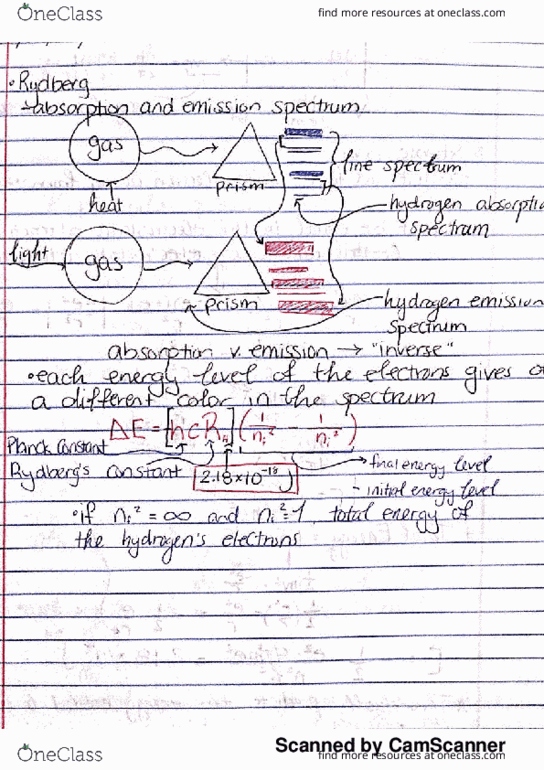 OneClass
find more resources at oneclass.com
• Rydberg
→absorption and emission spectrum
gas
prism
line spectrum
heat
hydrogen absorptio
spectrum
light
gas
prism
hydrogen emission
spectrum
absorption v. emission → "inverse"
• each energy level of the electrons gives o
a different color in the spectrum
ΔE = [hcR_H] (1/n_i² - 1/n_i²)
Planck Constant
Rydberg's constant 2.18×10⁻¹⁸ J
final energy level
- initial energy level
• if n_i² = ∞ and n_i² = 1, total energy of
the hydrogen's electrons
Scanned by CamScanner
OneClass
find more resources at oneclass.com